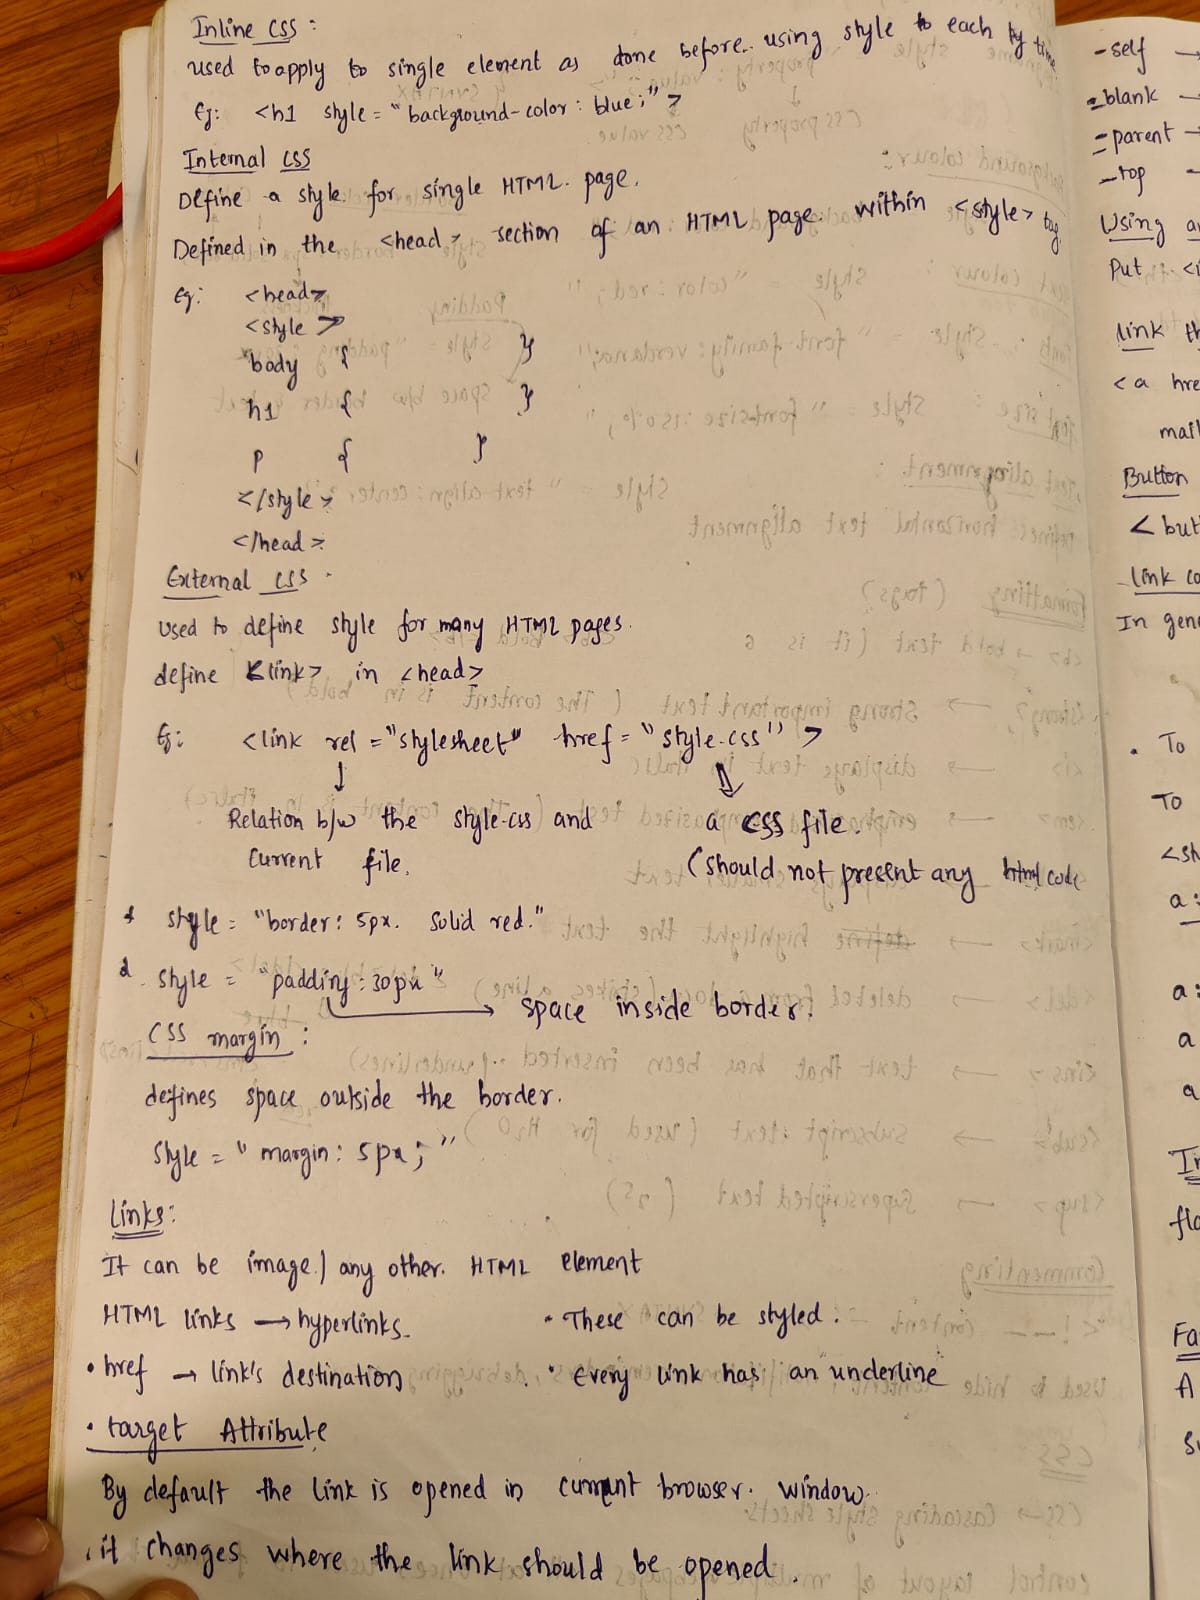 Inline CSS :
used to apply to single element as done before. using style to each by time
Eg: <h1 style = "background-color : blue;" >
Internal CSS
Define a style for single HTML page.
Defined in the <head> section of an HTML page. within <style> tag.
Eg: <head>
<style >
body { }
h1 { }
p { }
</style>
</head>
External CSS
Used to define style for many HTML pages.
define <link> in <head>
Eg: <link rel = "stylesheet" href = "style.css" >
↓ ⇓
Relation b/w the style.css and a CSS file.
current file. (should not present any html code
style = "border: 5px. Solid red."
style = "padding : 30px" → space inside border.
CSS margin :
defines space outside the border.
Style = " margin: 5px; "
Links:
It can be image / any other. HTML element
HTML links → hyperlinks. • These can be styled.
• href → link's destination • Every link has an underline
• target Attribute
By default the link is opened in current browser. window.
. it changes where the link should be opened.
-self →
_blank →
=parent →
_top -
Using
Put <i
link th
<a hre
mail
Button
< but
link co
In gen
• To
To
To
a :
a :
a
a